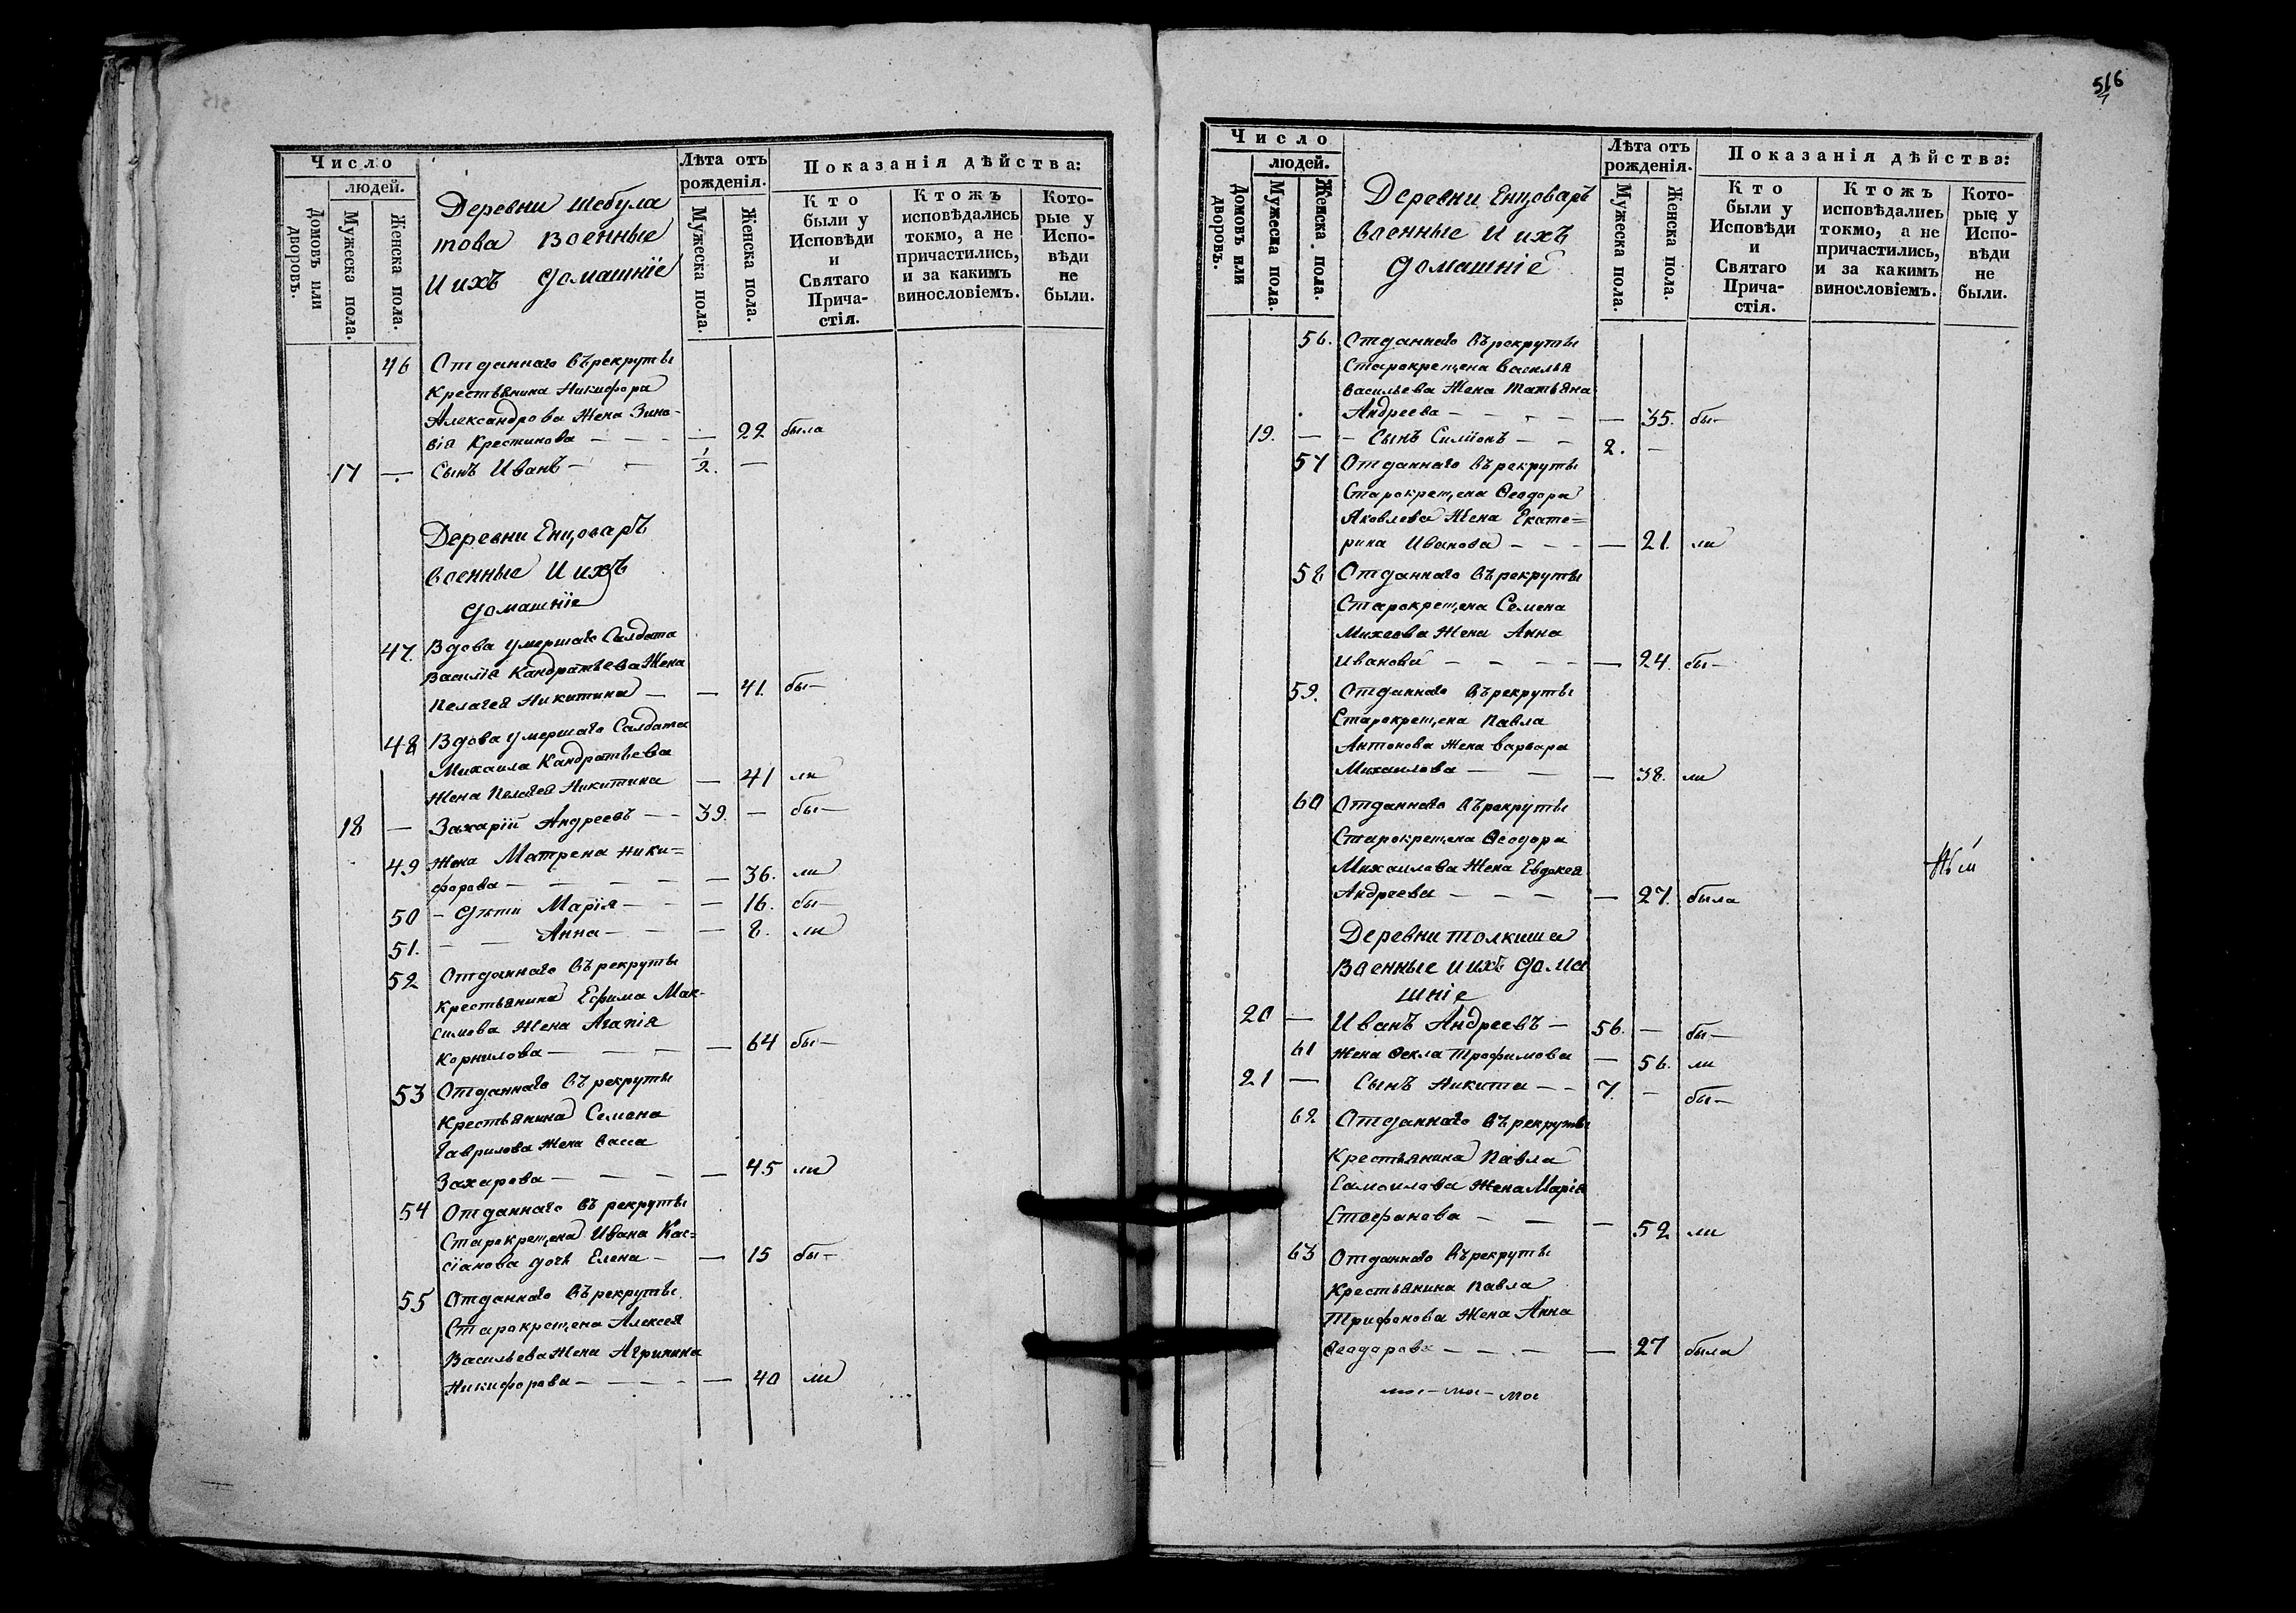 515
Число
людей.
Домовъ или дворовъ.
Мужеска пола.
Женска пола.
Деревни Шебула
това военные
и ихъ домашніе
Лѣта отъ
рожденія.
Мужеска пола.
Женска пола.
Показанія дѣйства:
Кто
были у
Исповѣди
и
Святаго
Прича-
стія.
Ктожъ
исповѣдались
токмо, а не
причастились,
и за какимъ
винословіемъ.
Кото-
рые у
Испо-
вѣди
не
были.
46 Отданнаго въ рекруты
Крестьянина Никифора
Александрова Жена Зино-
вія Крестинова — — 22 была
17 — Сынъ Иванъ — ½. —
Деревни Енцоваръ
военные и ихъ
домашніе
47. Вдова умершаго Салдата
Василія Кандратьева Жена
Пелагея Никитина — — 41. бы—
48 Вдова умершаго Салдата
Михаила Кандратьева
Жена Пелагея Никитина — 41 ли
18 — Захарій Андреевъ — — 39. — бы—
49 Жена Матрена Ники=
форова — — — — 36. ли
50 — Дѣти Марія — — 16. бы—
51. — — Анна — — 8. ли
52 Отданнаго въ рекруты
Крестьянина Ефима Мак-
симова Жена Агапія
Корнилова — — — 64 бы—
53 Отданнаго въ рекруты
Крестьянина Семена
Гаврилова Жена Васса
Захарова — — — — 45 ли
54 Отданнаго въ рекруты
Старокрещена Ивана Кас=
сіанова дочь Елена — — 15 бы—
55 Отданнаго въ рекруты
Старокрещена Алексея
Васильева Жена Агрипина
Никифорова — — — — 40 ли
516
Число
людей.
Домовъ или дворовъ.
Мужеска пола.
Женска пола.
Деревни Енцоваръ
военные и ихъ
домашніе
Лѣта отъ
рожденія.
Мужеска пола.
Женска пола.
Показанія дѣйства:
Кто
были у
Исповѣди
и
Святаго
Прича-
стія.
Ктожъ
исповѣдались
токмо, а не
причастились,
и за какимъ
винословіемъ.
Кото-
рые у
Испо-
вѣди
не
были.
56. Отданнаго въ рекруты
Старокрещена Василья
Васильева Жена Татьяна
Андреева — — — — 35. бы—
19. — — Сынъ Симіонъ — — 2. —
57 Отданнаго въ рекруты
Старокрещена Ѳеодора
Яковлева Жена Екате=
рина Иванова — — — — 21. ли
58 Отданнаго въ рекруты
Старокрещена Семена
Михеева Жена Анна
Иванова — — — — 24. бы—
59. Отданнаго въ рекруты
Старокрещена Павла
Антонова Жена Варвара
Михаилова — — — 38. ли
60 Отданнаго въ рекруты
Старокрещена Ѳеодора
Михаилова Жена Евдокея
Андреева — — — — 27. была
Деревни Толкиша
Военные и ихъ дома
шніе
20 — Иванъ Андреевъ — 56. — бы—
61 Жена Ѳекла Трофимова — 56. ли
21 — Сынъ Никита — — 7. — бы—
62 Отданнаго въ рекруты
Крестьянина Павла
Самоилова Жена Марія
Стефанова — — — 52 ли
63 Отданнаго въ рекруты
Крестьянина Павла
Трифонова Жена Анна
Ѳеодорова — — — — 27 была